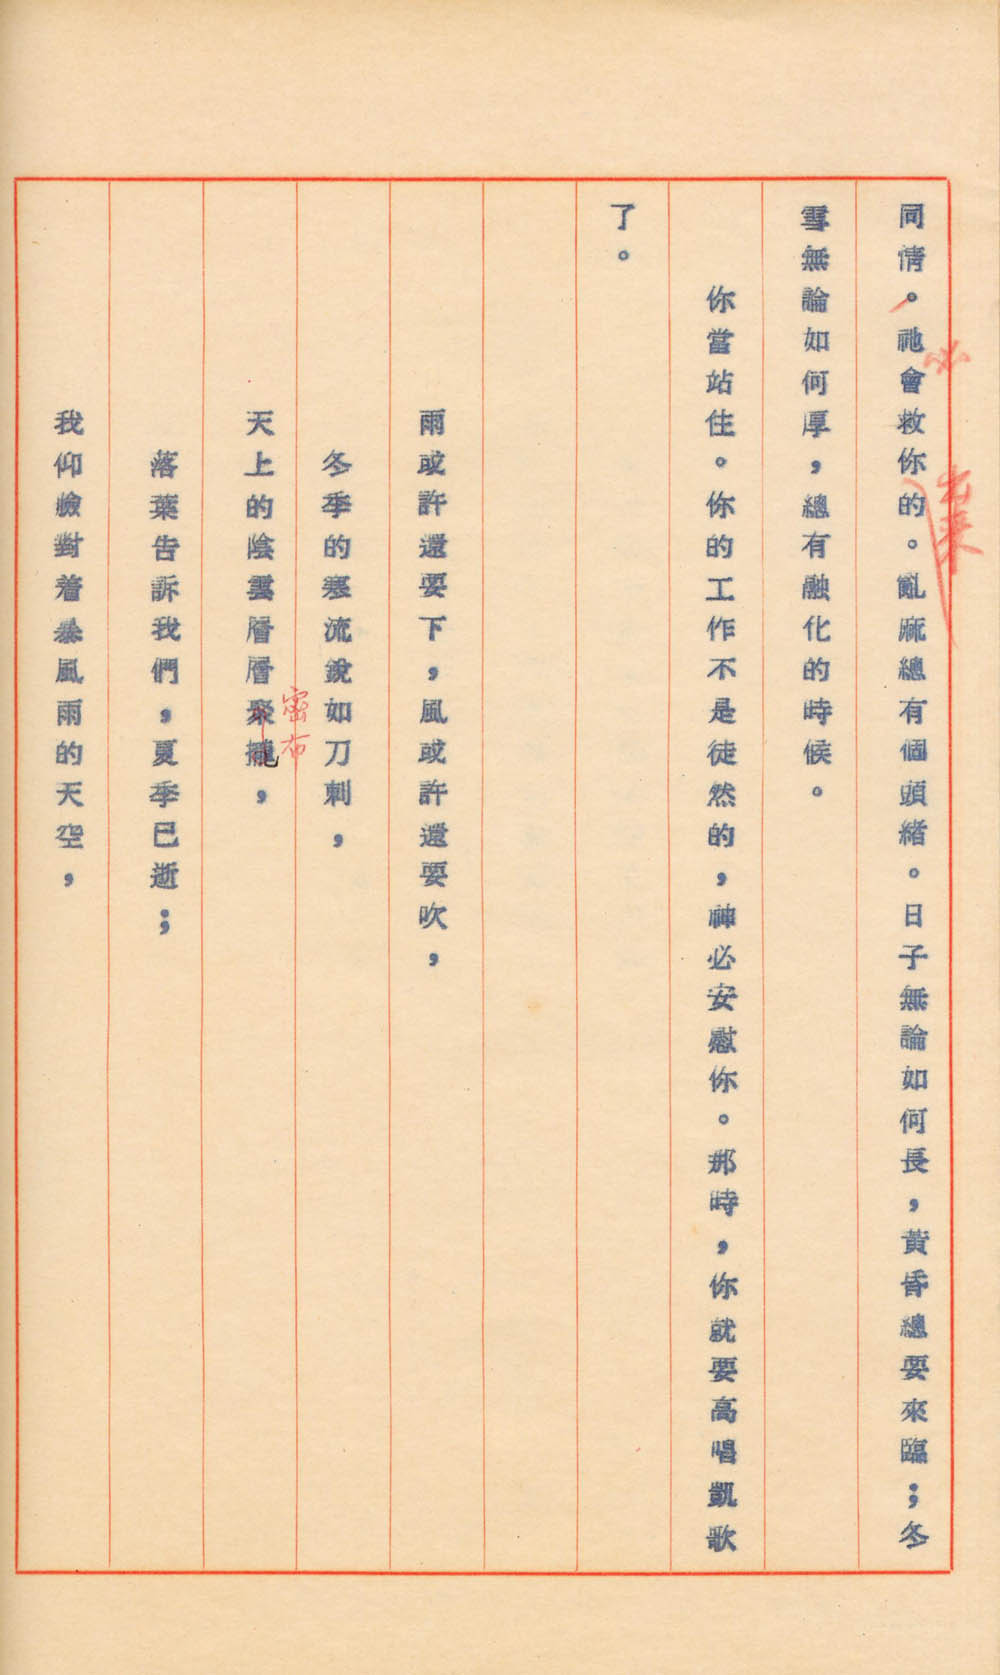 同情。祂會救你的。亂麻總有個頭緒。日子無論如何長，黃昏總要來臨；冬
必
出來
雪無論如何厚，總有融化的時候。
你當站住。你的工作不是徒然的，神必安慰你。那時，你就要高唱凱歌
了。
雨或許還要下，風或許還要吹，
冬季的寒流銳如刀刺，
天上的陰雲層層聚攏，
密布
落葉告訴我們，夏季已逝；
我仰臉對着暴風雨的天空，